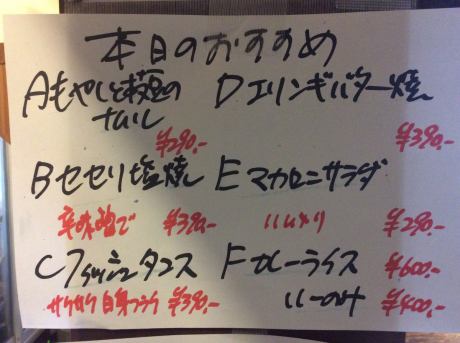 本日のおすすめ
Aもやしと枝豆の
ナムル
¥290.-
Bセセリ塩焼
辛味噌で ¥390.-
Cフィッシュタコス
サクサク白身フライ ¥390.-
Dエリンギバター焼
¥390.-
Eマカロニサラダ
ハム入り ¥290.-
Fカレーライス ¥600.-
ルーのみ ¥400.-